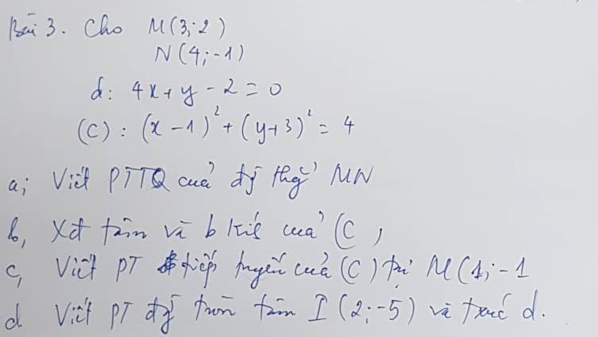 Bài 3. Cho M(3;2)
N(4;-1)
d: 4x+y-2=0
(C): (x-1)²+(y+3)²=4
a; Viết PTTQ của đg thg MN
b, Xđ tâm và b kís của (C,
c, Viết PT tiếp tuyến của (C) tại M(1;-1
d Viết PT đg tròn tâm I(2;-5) và txúc d.